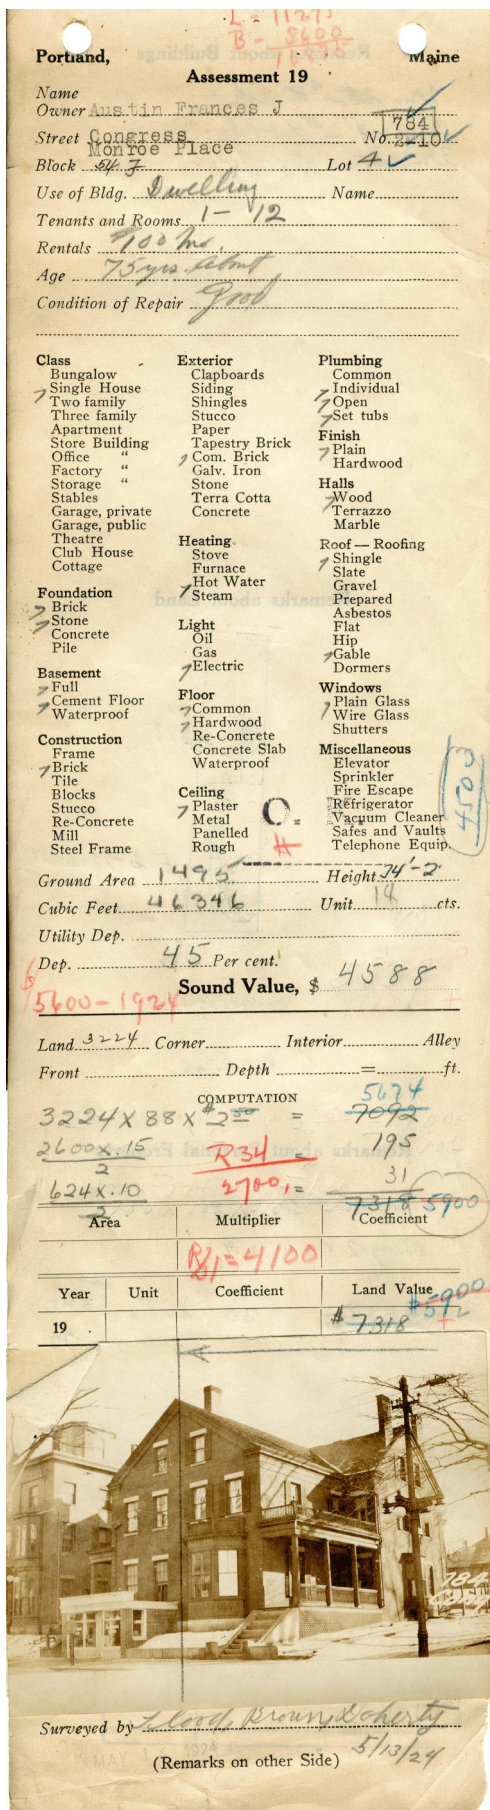 L = 11275
B - 5600
Portland, Maine
Assessment 19
Name
Owner Austin Frances J
784
Street Congress No. 2-10
Monroe Place
Block 54 J Lot 4
Use of Bldg. Dwelling Name
Tenants and Rooms 1 - 12
Rentals $100 mo.
Age 75 yrs. about
Condition of Repair Good
Class
Bungalow
Single House
Two family
Three family
Apartment
Store Building
Office "
Factory "
Storage "
Stables
Garage, private
Garage, public
Theatre
Club House
Cottage
Foundation
Brick
Stone
Concrete
Pile
Basement
Full
Cement Floor
Waterproof
Construction
Frame
Brick
Tile
Blocks
Stucco
Re-Concrete
Mill
Steel Frame
Exterior
Clapboards
Siding
Shingles
Stucco
Paper
Tapestry Brick
Com. Brick
Galv. Iron
Stone
Terra Cotta
Concrete
Heating
Stove
Furnace
Hot Water
Steam
Light
Oil
Gas
Electric
Floor
Common
Hardwood
Re-Concrete
Concrete Slab
Waterproof
Ceiling
Plaster
Metal
Panelled
Rough
Plumbing
Common
Individual
Open
Set tubs
Finish
Plain
Hardwood
Halls
Wood
Terrazzo
Marble
Roof — Roofing
Shingle
Slate
Gravel
Prepared
Asbestos
Flat
Hip
Gable
Dormers
Windows
Plain Glass
Wire Glass
Shutters
Miscellaneous
Elevator
Sprinkler
Fire Escape
Refrigerator
Vacuum Cleaner
Safes and Vaults
Telephone Equip.
4503
O.
H
Ground Area 1495 Height 34'-2"
Cubic Feet 46346 Unit 18 cts.
Utility Dep.
Dep. 45 Per cent.
Sound Value, $ 4588
$5600 - 1924
Land 3224 Corner Interior Alley
Front Depth = ft.
COMPUTATION 5674
3224 X 88 X $2.50 = 7092
2600 X .15 R34 = 195
2
624 X .10 2700, = 31
2 7318 5900
Area Multiplier Coefficient
R/51 = 4100
Year Unit Coefficient Land Value
19 . $ 7318
784
Cong
Surveyed by Flood, Brown, Doherty
5/13/24
(Remarks on other Side)